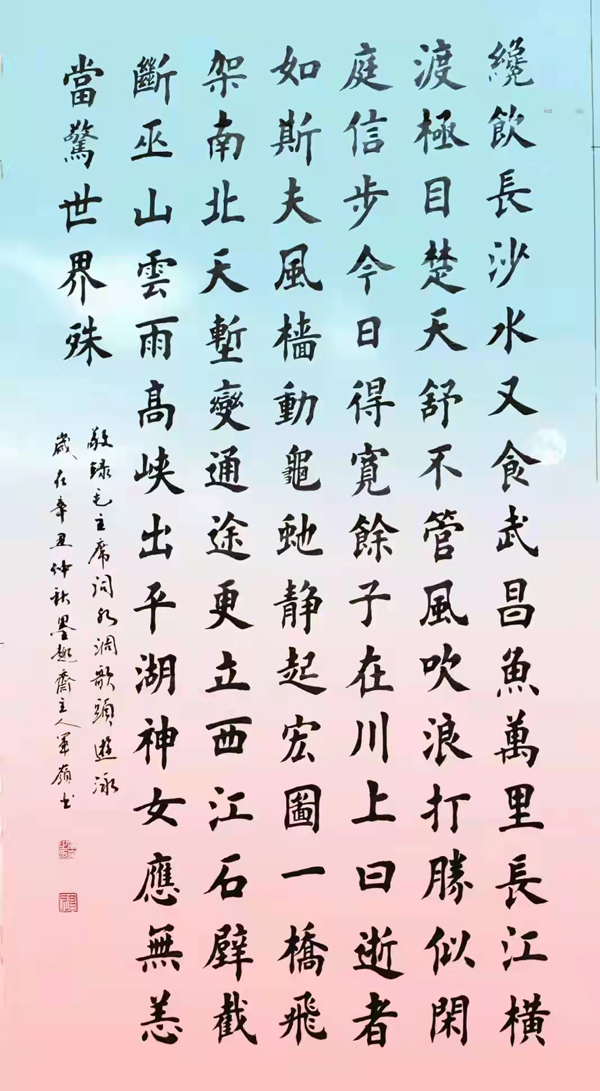 纔飲長沙水又食武昌魚萬里長江橫
渡極目楚天舒不管風吹浪打勝似閑
庭信步今日得寬餘子在川上曰逝者
如斯夫風檣動龜虵静起宏圖一橋飛
架南北天塹變通途更立西江石壁截
斷巫山雲雨高峡出平湖神女應無恙
當驚世界殊
敬録毛主席词水调歌頭遊泳
嵗在辛丑仲秋墨趣齋主人軍嶺书